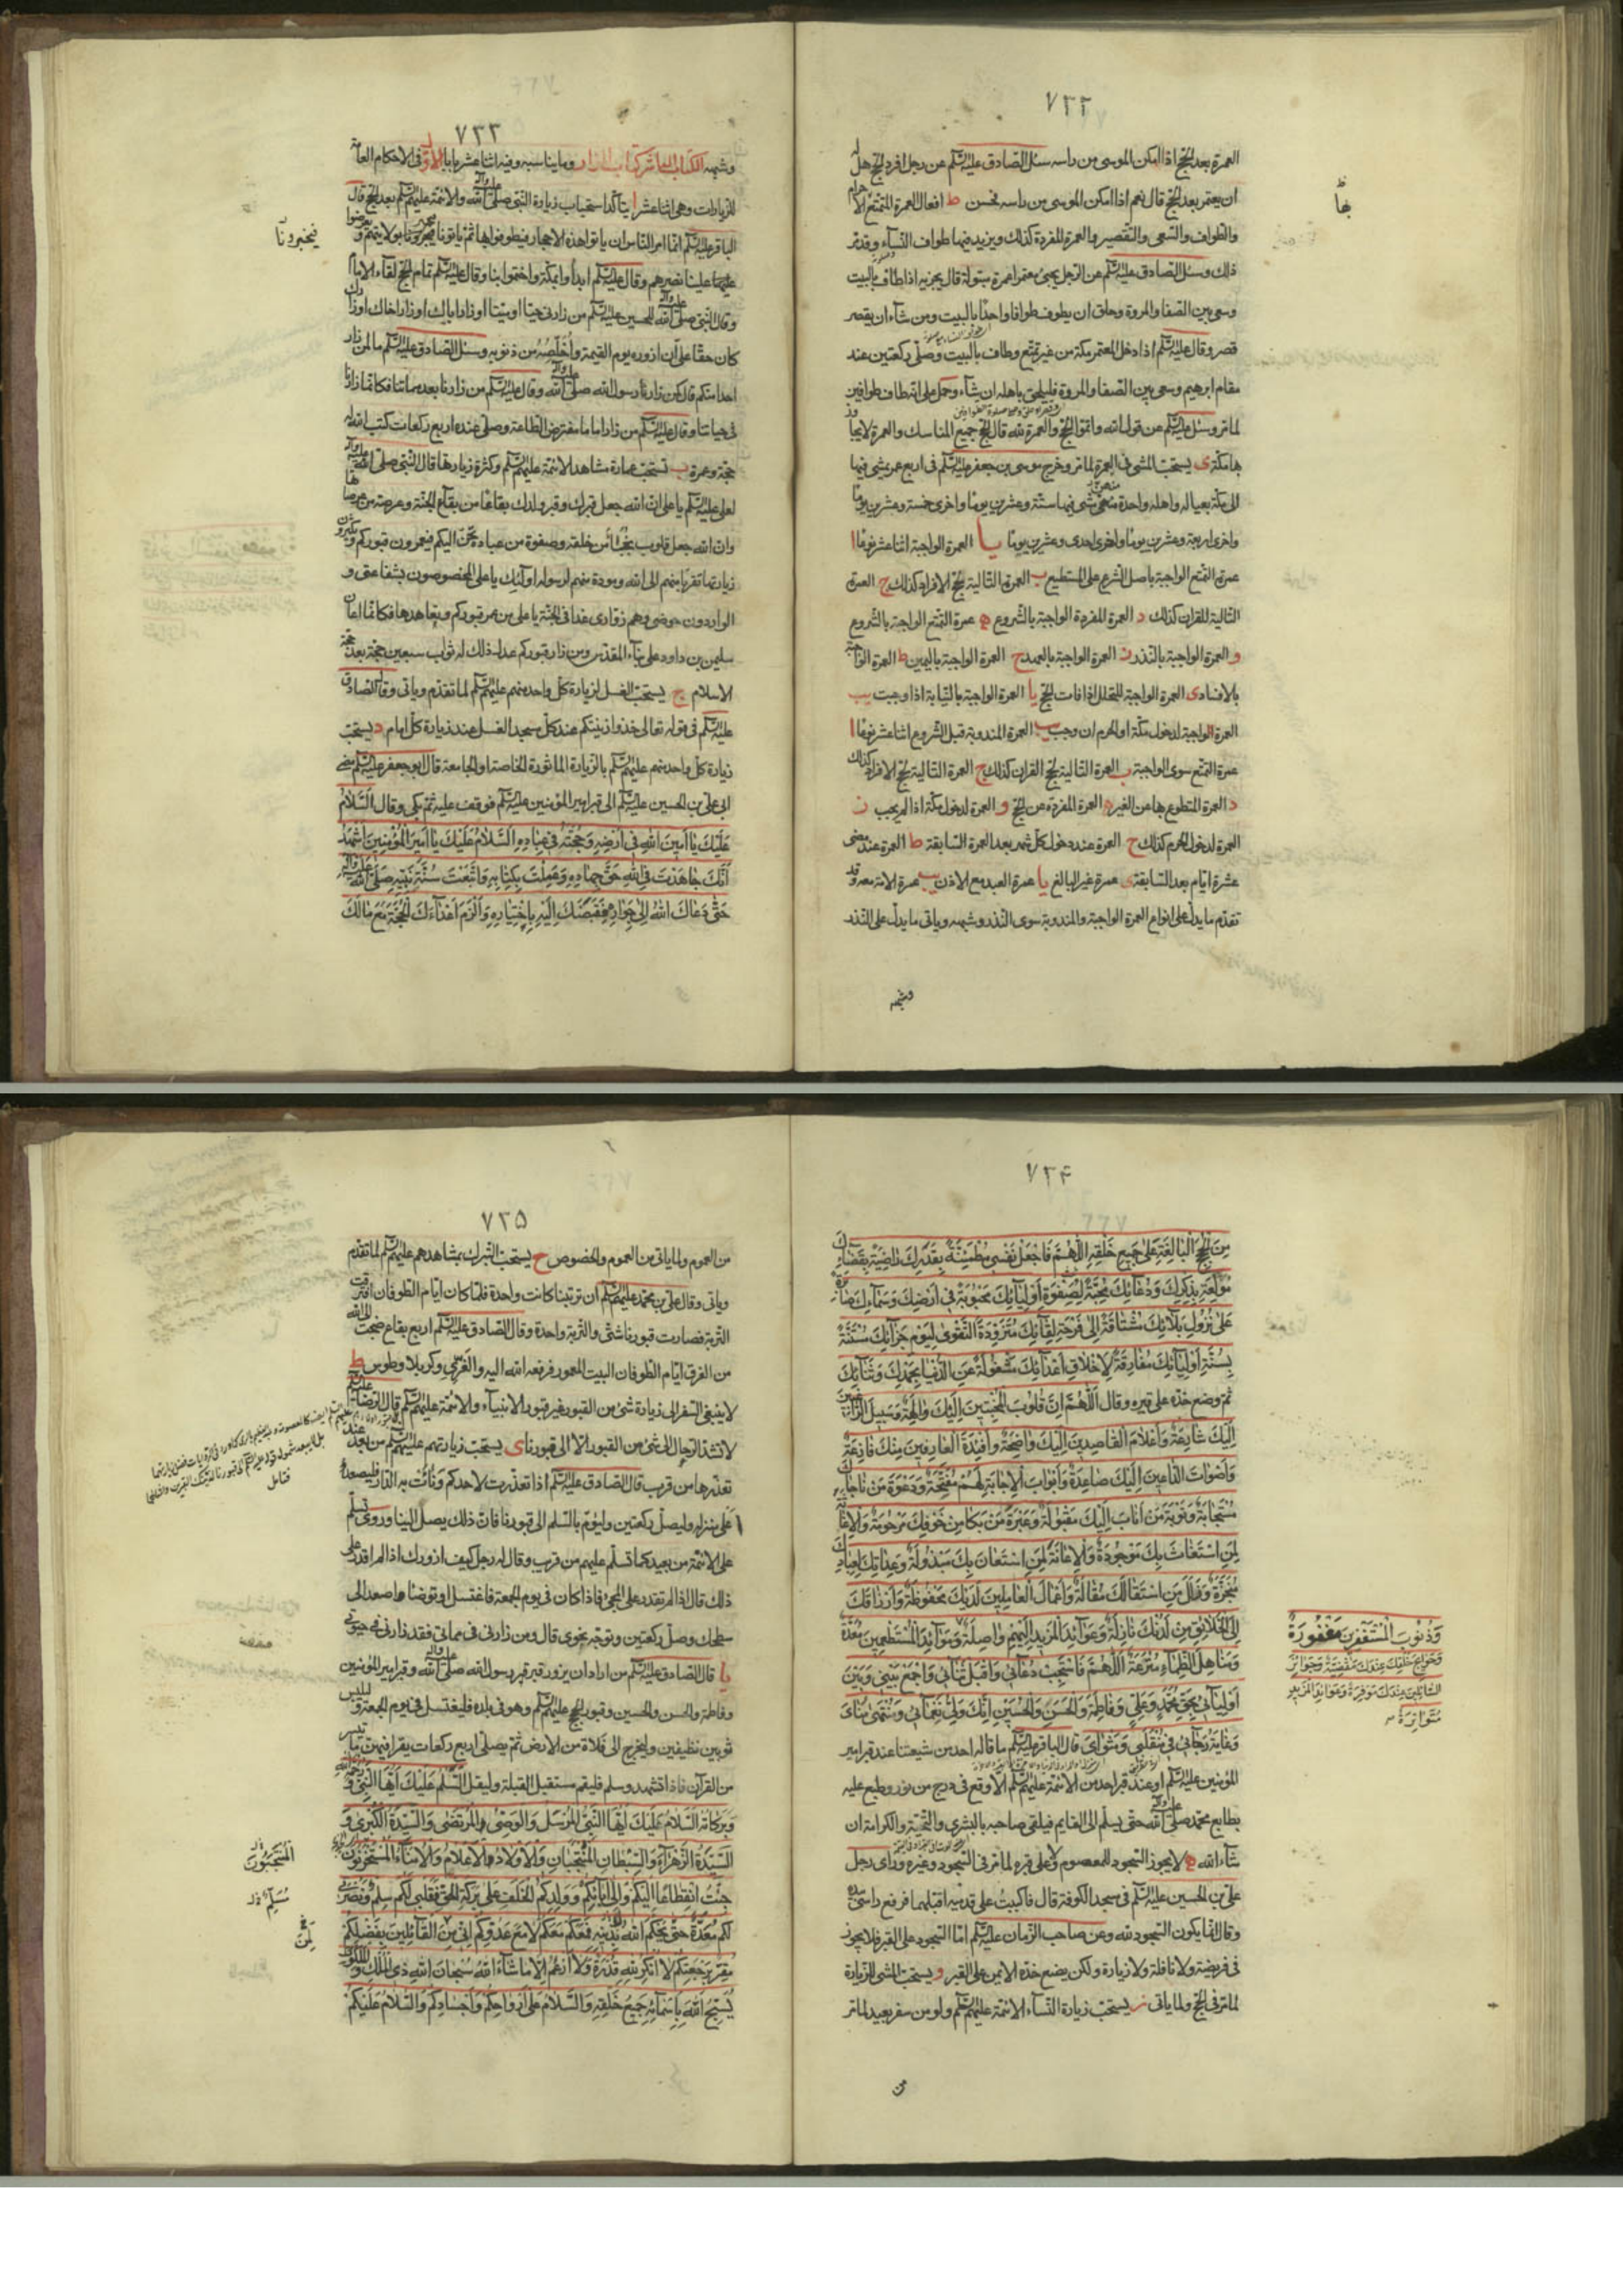 ٧٣٢
العمرة بعد الحج اذا امكن الموسى من راسه سئل الصادق عليه السلم عن رجل افرد الحج هل له
ان يعتمر بعد الحج قال نعم اذا امكن الموسى من راسه فحسن ط افعال العمرة للتمتع الاحرام
والطواف والسعى والتقصير والعمرة المفردة كذلك ويزيد فيها طواف النسآء وقد مر
ذلك وسئل الصادق عليه السلم عن الرجل يجئ معتمرا عمرة مبتولة قال يجزيه اذا طاف بالبيت
وسعى بين الصفا والمروة وحلق ان يطوف طوافا واحدًا بالبيت ومن شآء ان يقصر
قصر وقال عليه السلم اذا دخل المعتمر مكة من غير تمتع وطاف بالبيت وصلى ركعتين عند
مقام ابرهيم وسعى بين الصفا والمروة فليلحق باهله ان شآء وحمل على انه طاف طوافين
لما مر وسئل عليه السلم عن قول الله واتموا الحج والعمرة لله قال الحج جميع المناسك والعمرة لا يجاوز
بها مكة ى يستحب المشى فى العمرة لما مر وخرج موسى بن جعفر عليه السلم فى اربع عمر يمشى فيها
الى مكة بعياله واهله واحدة منهن مشى فيها ستة وعشرين يومًا واخرى خمسة وعشرين يومًا
واخرى اربعة وعشرين يومًا واخرى احدى وعشرين يومًا يا العمرة الواجبة اثنا عشر نوعًا ا
عمرة التمتع الواجبة باصل الشرع على المستطيع ب العمرة التالية لحج الافراد كذلك ج العمرة
التالية للقران كذلك د العمرة المفردة الواجبة بالشروع ه عمرة التمتع الواجبة بالشروع
و العمرة الواجبة بالنذر ز العمرة الواجبة بالعهد ح العمرة الواجبة باليمين ط العمرة الواجبة
بالافساد ى العمرة الواجبة للتحلل اذا فات الحج يا العمرة الواجبة بالنيابة اذا وجبت يب
العمرة الواجبة لدخول مكة او الحرم ان وجب يب العمرة المندوبة قبل الشروع اثنا عشر نوعًا ا
عمرة التمتع سوى الواجبة ب العمرة التالية لحج القران كذلك ج العمرة التالية لحج الافراد كذلك
د العمرة المتطوع بها عن الغير ه العمرة المفردة عن الحج و العمرة لدخول مكة اذا لم يجب ز
العمرة لدخول الحرم كذلك ح العمرة عند دخول كل شهر بعد العمرة السابقة ط العمرة عند مضى
عشرة ايام بعد السابقة ى عمرة غير البالغ يا عمرة العبد مع الاذن يب عمرة الامة معه وقد
تقدم ما يدل على انواع العمرة الواجبة والمندوبة سوى النذر وشبهه وياتى ما يدل على النذر
وشبهه
٧٣٣
وشبهه الكتاب العاشر كتاب المزار وما يناسبه وفيه اثنا عشر بابا الاول فى الاحكام العامة
للزيارات وهى اثنا عشر ا يتاكد استحباب زيارة النبى صلى الله عليه وآله والائمة عليهم السلم بعد الحج قال
الباقر عليه السلم انما امر الناس ان ياتوا هذه الاحجار فيطوفوا بها ثم ياتونا فيخبرونا بولايتهم ويعرضوا
فيخبرونا
علينا نصرهم وقال عليه السلم ابدأوا بمكة واختموا بنا وقال عليه السلم تمام الحج لقآء الامام
وقال النبى صلى الله عليه وآله للحسين عليه السلم من زارنى حيا او ميتا او زار اباك او زار اخاك او زارك
كان حقًا على ان ازوره يوم القيمة واخلصه من ذنوبه وسئل الصادق عليه السلم ما لمن زار
احدا منكم قال كمن زار رسول الله صلى الله عليه وآله وقال عليه السلم من زارنا بعد مماتنا فكانما زارنا
فى حياتنا وقال عليه السلم من زار اماما مفترض الطاعة وصلى عنده اربع ركعات كتب الله له
حجة وعمرة ب تستحب عمارة مشاهد الائمة عليهم السلم وكثرة زيارتها قال النبى صلى الله عليه وآله
لعلى عليه السلم يا على ان الله جعل قبرك وقبر ولدك بقاعًا من بقاع الجنة وعرصة من عرصاتها
وان الله جعل قلوب نجبآء من خلقه وصفوة من عباده تحن اليكم فيعمرون قبوركم ويكثرون
زيارتها تقربا منهم الى الله ومودة منهم لرسوله اولئك يا على المخصوصون بشفاعتى و
الواردون حوضى وهم زوارى غدا فى الجنة يا على من عمر قبوركم وتعاهدها فكانما اعان
سليمن بن داود على بنآء المقدس ومن زار قبوركم عدل ذلك له ثواب سبعين حجة بعد حجة
الاسلام ج يستحب الغسل لزيارة كل واحد منهم عليهم السلم لما تقدم وياتى وقال الصادق
عليه السلم فى قوله تعالى خذوا زينتكم عند كل مسجد الغسل عند زيارة كل امام د يستحب
زيارة كل واحد منهم عليهم السلم بالزيارة الماثورة الخاصة او الجامعة قال ابو جعفر عليه السلم مضى
ابى على بن الحسين عليه السلم الى قبر امير المؤمنين عليه السلم فوقف عليه ثم بكى وقال السلام
عليك يا امين الله فى ارضه وحجته فى عباده السلام عليك يا امير المؤمنين اشهد
انك جاهدت فى الله حق جهاده وعملت بكتابه واتبعت سنة نبيه صلى الله عليه وآله
حتى دعاك الله الى جواره فقبضك اليه باختياره والزم اعدآءك الحجة مع مالك
٧٣۴
من الحجج البالغة على جميع خلقه اللهم فاجعل نفسى مطمئنة بقدرك راضية بقضائك
مولعة بذكرك ودعآئك محبة لصفوة اوليآئك محبوبة فى ارضك وسمآئك صابرة
على نزول بلآئك مشتاقة الى فرحة لقآئك متزودة التقوى ليوم جزآئك مستنة
بسنة اوليآئك مفارقة لاخلاق اعدآئك مشغولة عن الدنيا بحمدك وثنآئك
ثم وضع خده على قبره وقال اللهم ان قلوب المخبتين اليك والهة وسبل الراغبين
اليك شارعة واعلام القاصدين اليك واضحة وافئدة العارفين منك فازعة
واصوات الداعين اليك صاعدة وابواب الاجابة لهم مفتحة ودعوة من ناجاك
مستجابة وتوبة من اناب اليك مقبولة وعبرة من بكا من خوفك مرحومة والاغاثة
لمن استغاث بك موجودة والاعانة لمن استعان بك مبذولة وعداتك لعبادك
منجزة وزلل من استقالك مقالة واعمال العاملين لديك محفوظة وارزاقك
الى الخلائق من لدنك نازلة وعوآئد المزيد اليهم واصلة وموآئد المستطعمين معدة
وذنوب المستغفرين مغفورة
وحوائج خلقك عندك مقضية وجوائز
السائلين عندك موفرة وعوائد المزيد
متواترة
ومناهل الظمآء مترعة اللهم فاستجب دعآئى واقبل ثنآئى واجمع بينى وبين
اوليآئى بحق محمد وعلى وفاطمة والحسن والحسين انك ولى نعمآئى ومنتهى مناى
وغاية رجآئى فى منقلبى ومثواى قال الباقر عليه السلم ما قاله احد من شيعتنا عند قبر امير
المؤمنين عليه السلم او عند قبر احد من الائمة عليهم السلم الا وقع فى درج من نور وطبع عليه
بطابع محمد صلى الله عليه وآله حتى يسلم الى القايم فيلقى صاحبه بالبشرى والتحية والكرامة ان
شآء الله ه لا يجوز السجود للمعصوم ولا على قبره لما مر فى السجود وغيره وراى رجل
على بن الحسين عليه السلم فى مسجد الكوفة قال فاكببت على قدميه اقبلهما فرفع راسى بيده
وقال انما يكون السجود لله وعن صاحب الزمان عليه السلم اما السجود على القبر فلا يجوز
فى فريضة ولا نافلة ولا زيارة ولكن يضع خده الايمن على القبر و يستحب المشى للزيارة
لما مر فى الحج ولما ياتى ز يستحب زيارة النسآء الائمة عليهم السلم ولو من سفر بعيد لما مر
من
٧٣۵
من العموم ولما ياتى من العموم والخصوص ح يستحب التبرك بمشاهدهم عليهم السلم لما تقدم
وياتى وقال على بن محمد عليهم السلم ان تربتنا كانت واحدة فلما كان ايام الطوفان افترقت
التربة فصارت قبورنا شتى والتربة واحدة وقال الصادق عليه السلم اربع بقاع ضجت الى الله
من الغرق ايام الطوفان البيت المعمور فرفعه الله اليه والغرى وكربلا وطوس ط
لا ينبغى السفر الى زيارة شئ من القبور غير قبور الانبيآء والائمة عليهم السلم قال الرضا عليه السلم
لا تشد الرحال الى شئ من القبور الا الى قبورنا ى يستحب زيارتهم عليهم السلم من بعد عند
تعذرها من قريب قال الصادق عليه السلم اذا تعذرت لاحدكم ونأت به الدار فليصعد
على منزله وليصل ركعتين وليؤم بالسلم الى قبورنا فان ذلك يصل الينا وروى تسلم
على الائمة من بعيد كما تسلم عليهم من قريب وقال له رجل كيف ازورك اذا لم اقدر على
ذلك قال اذا لم تقدر على المجئ فاذا كان فى يوم الجمعة فاغتسل او توضا واصعد الى
سطحك وصل ركعتين وتوجه نحوى قال ومن زارنى فى مماتى فقد زارنى فى حيوتى
يا قال الصادق عليه السلم من اراد ان يزور قبر رسول الله صلى الله عليه وآله وقبر امير المؤمنين
وفاطمة والحسن والحسين وقبور الحجج عليهم السلم وهو فى بلده فليغتسل فى يوم الجمعة وليلبس
ثوبين نظيفين وليخرج الى فلاة من الارض ثم يصلى اربع ركعات يقرا فيهن ما تيسر
من القرآن فاذا تشهد وسلم فليقم مستقبل القبلة وليقل السلم عليك ايها النبى ورحمة الله
وبركاته السلام عليك ايها النبى المرسل والوصى المرتضى والسيدة الكبرى و
السيدة الزهرآء والسبطان المنتجبان والاولاد الاعلام والامنآء المستخزنون
المنتجبون
جئت انقطاعا اليكم والى ابآئكم وولدكم الخلف على بركة الحق فقلبى لكم سلم ونصرتى
لكم معدة حتى يحكم الله بدينه فمعكم معكم لا مع عدوكم انى من القائلين بفضلكم
لمن
مقر برجعتكم لا انكر لله قدرة ولا ازعم الا ما شآء الله سبحان الله ذى الملك والملكوت
يسبح الله باسمآئه جميع خلقه والسلام على ارواحكم واجسادكم والسلام عليكم